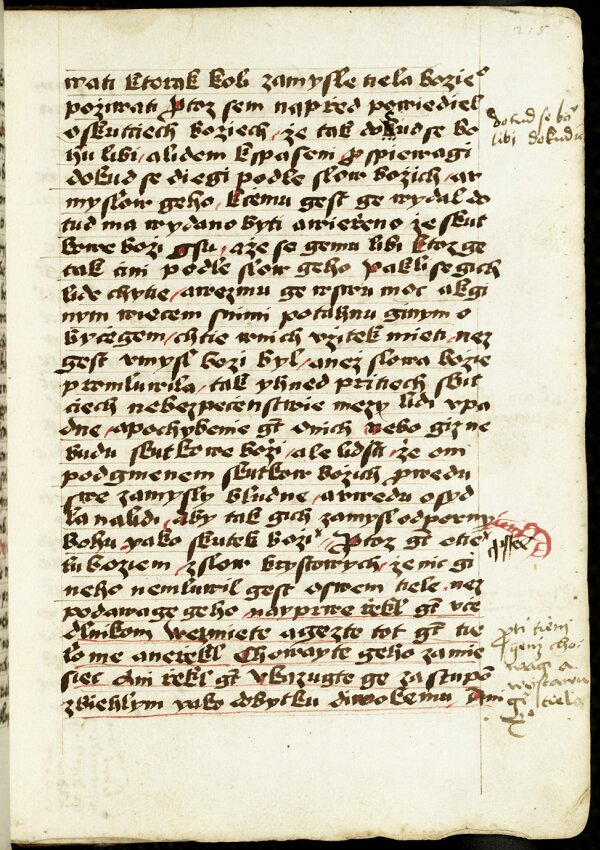 215
wati ktorak koli zamysle tiela bozie°
poziwati Protoz sem napred powiediel
o skutciech boziech / ze tak dokud se bo
hu libi / a lidem k spaseni prospiewagi
dokud se diegi podle slow bozich / a w
myslow geho / k cemu gest ge wydal do
tud ma wydano byti a wierzeno ze skut
kowe bozi gsu / a ze se gemu libi ktoz ge
tak cini podle slow geho pakli se gich
lide chytie / a wezmu ge w swu moc a k gi
nym wiecem s nimi potahnu ginym o
byczegem / chtie w nich vzitek mieti / nez
gest vmysl bozi byl / a nez slowa bozie
promluwila / tak yhned pri tiech skut
ciech nebezpecenstwie mezy lidi vpa
dne / a pochybenie gt o nich nebo giz ne
budu skutkowe bozi / ale lidsti / ze oni
podgmenem skutkow bozich prowedu
swe zamysly bludne / a uwedu ospd
la na lidi / aby tak gich zamysl odporny
bohu / yako skutek bozi Protoz gt o tie
lu boziem / z slow krystowych / ze nic gi
neho nemluwil gest o swem tiele / nez
podawage geho / nayprwe rekl gt vce
dlnikom wezmiete a gezte tot gt tie
lo me a nerekl Chowayte geho za mie
siec Ani rekl gt vkazugte ge zastupo
zbiehlym yako dobytku diwokemu Ani
dotud se bo
libi dokud
proti tiem
genz cho
wagi a
wystawu
gi tielo